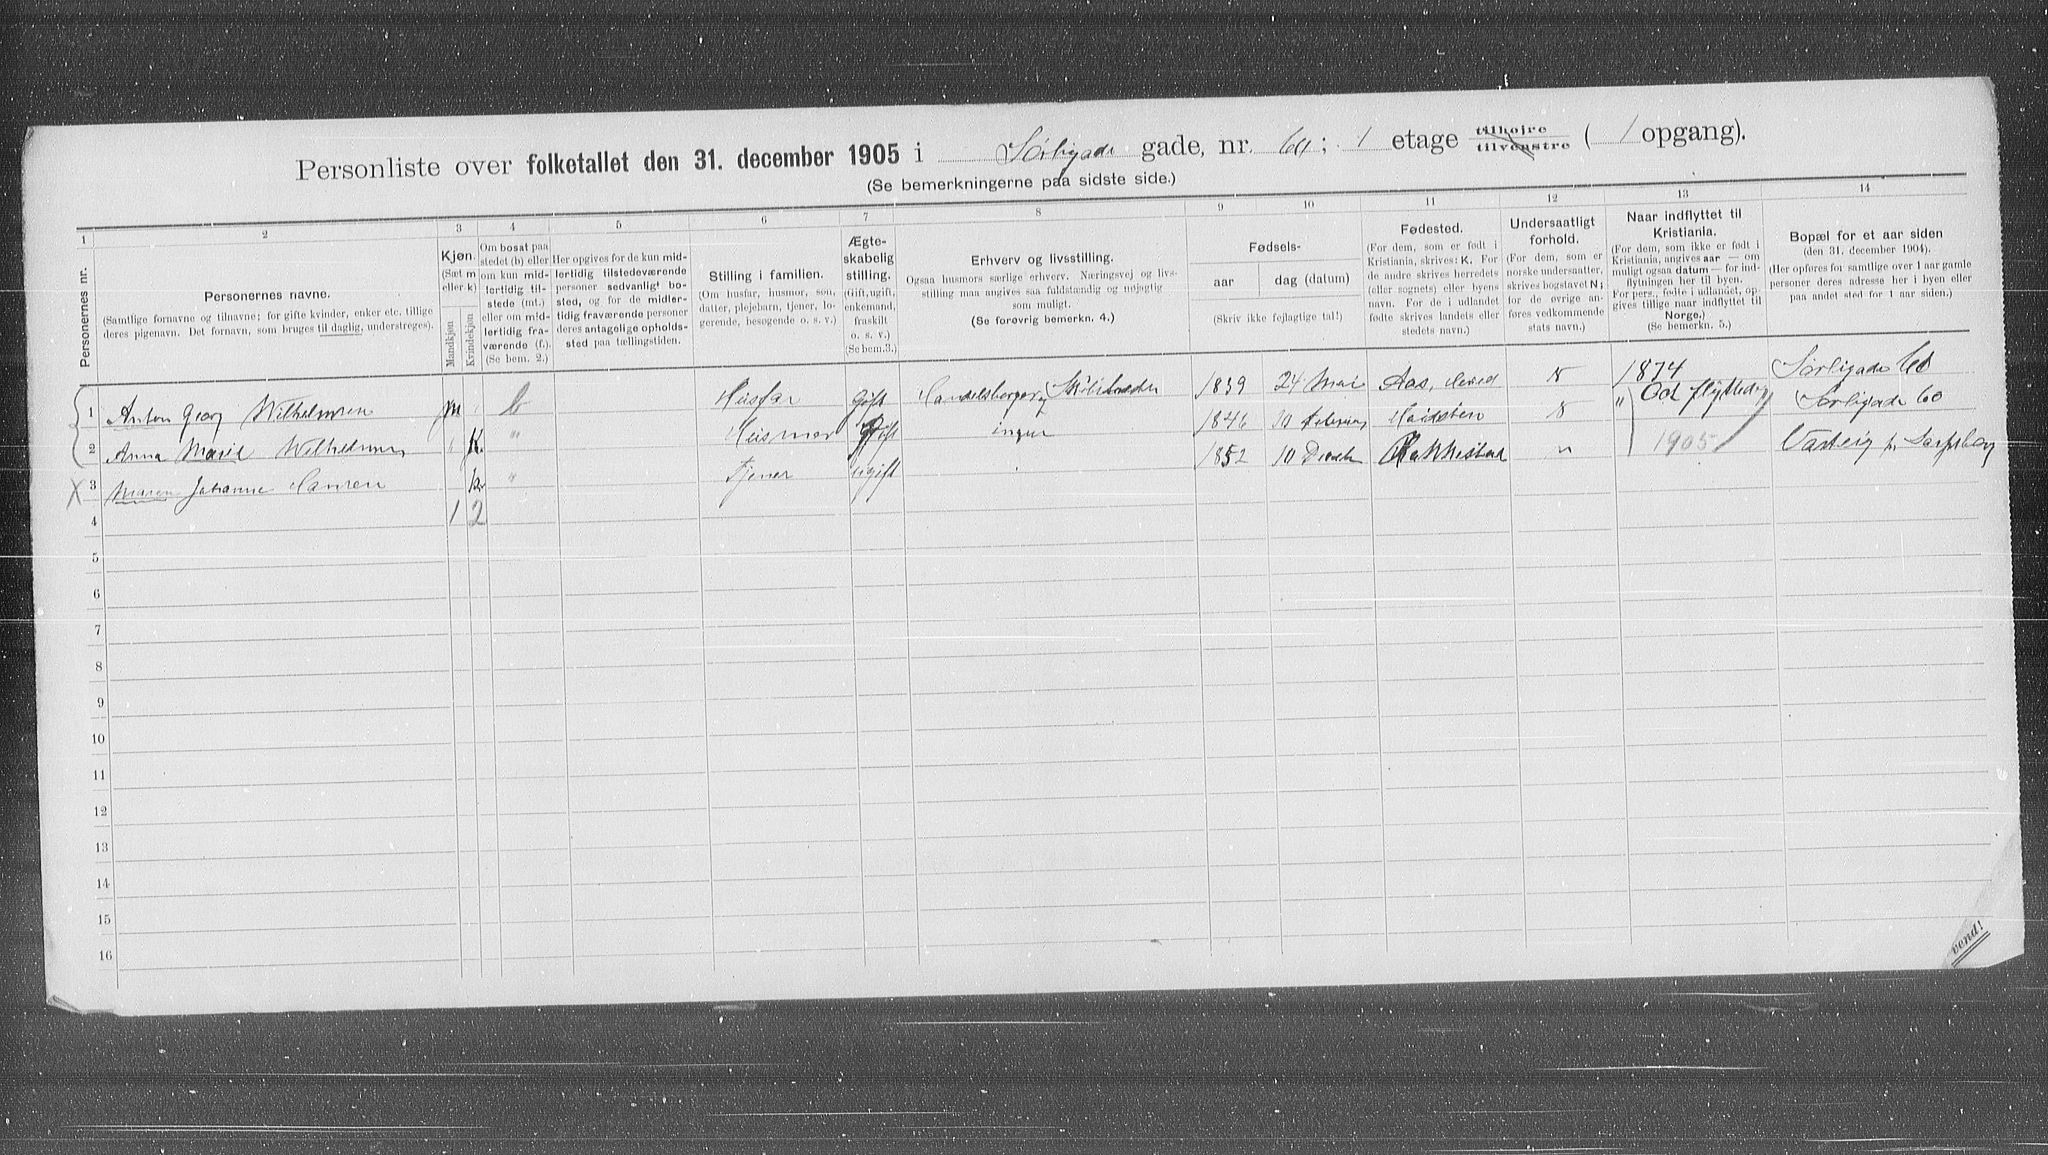 Personliste over folketallet den 31. december 1905 i Sørligade gade, nr. 60; 1 etage tilhøjre tilvenstre ( 1 opgang).
(Se bemerkningerne paa sidste side.)
1 2 3 4 5 6 7 8 9 10 11 12 13 14
Personernes nr.
Personernes navne.
(Samtlige fornavne og tilnavne; for gifte kvinder, enker etc. tillige
deres pigenavn. Det fornavn, som bruges til daglig, understreges).
Kjøn.
(Sæt m
eller k)
Mandkjøn
Kvindekjøn
Om bosat paa
stedet (b) eller
om kun mid-
lertidig til-
stede (mt.)
eller om mid-
lertidig fra-
værende (f.).
(Se bem. 2.)
Her opgives for de kun mid-
lertidig tilstedeværende
personer sedvanligt bo-
sted, og for de midler-
tidig fraværende personer
deres antagelige opholds-
sted paa tællingstiden.
Stilling i familien.
(Om husfar, husmor, søn,
datter, plejebarn, tjener, lo-
gerende, besøgende o. s. v.)
Ægte-
skabelig
stilling.
(Gift, ugift,
enkemand,
fraskilt
o. s. v.)
(Se bem.3.)
Erhverv og livsstilling.
Ogsaa husmors særlige erhverv. Næringsvej og livs-
stilling maa angives saa fuldstændig og nøjagtig
som muligt.
(Se forøvrig bemerkn. 4.)
Fødsels-
aar dag (datum)
(Skriv ikke fejlagtige tal!)
Fødested.
(For dem, som er født i
Kristiania, skrives: K. For
de andre skrives herredets
(eller sognets) eller byens
navn. For de i udlandet
fødte skrives landets eller
stedets navn.)
Undersaatligt
forhold.
(For dem, som er
norske undersaatter,
skrives bogstavet N;
for de øvrige an-
føres vedkommende
stats navn.)
Naar indflyttet til
Kristiania.
(For dem, som ikke er født i
Kristiania, angives aar — om
muligt ogsaa datum — for ind-
flytningen her til byen.
For pers., fødte i udlandet, op-
gives tillige naar indflyttet til
Norge.)
(Se bemerkn. 5.)
Bopæl for et aar siden
(den 31. december 1904).
(Her opføres for samtlige over 1 aar gamle
personer deres adresse her i byen eller
paa andet sted for 1 aar siden.)
1 Anton Georg Wilhelmsen m b Husfar Gift Handelsborger 1839 24 Mai Aas, N 1874 Sørligade 60
2 Anna Marie Wilhelmsen K. " Husmor Gift ingen 1846 10 Februar N " Sørligade 60
X 3 Maren Johanne Hansen k " Tjener ugift 1852 10 " 1905 Sarpsborg
4 1 2
5
6
7
8
9
10
11
12
13
14
15
16
vend!